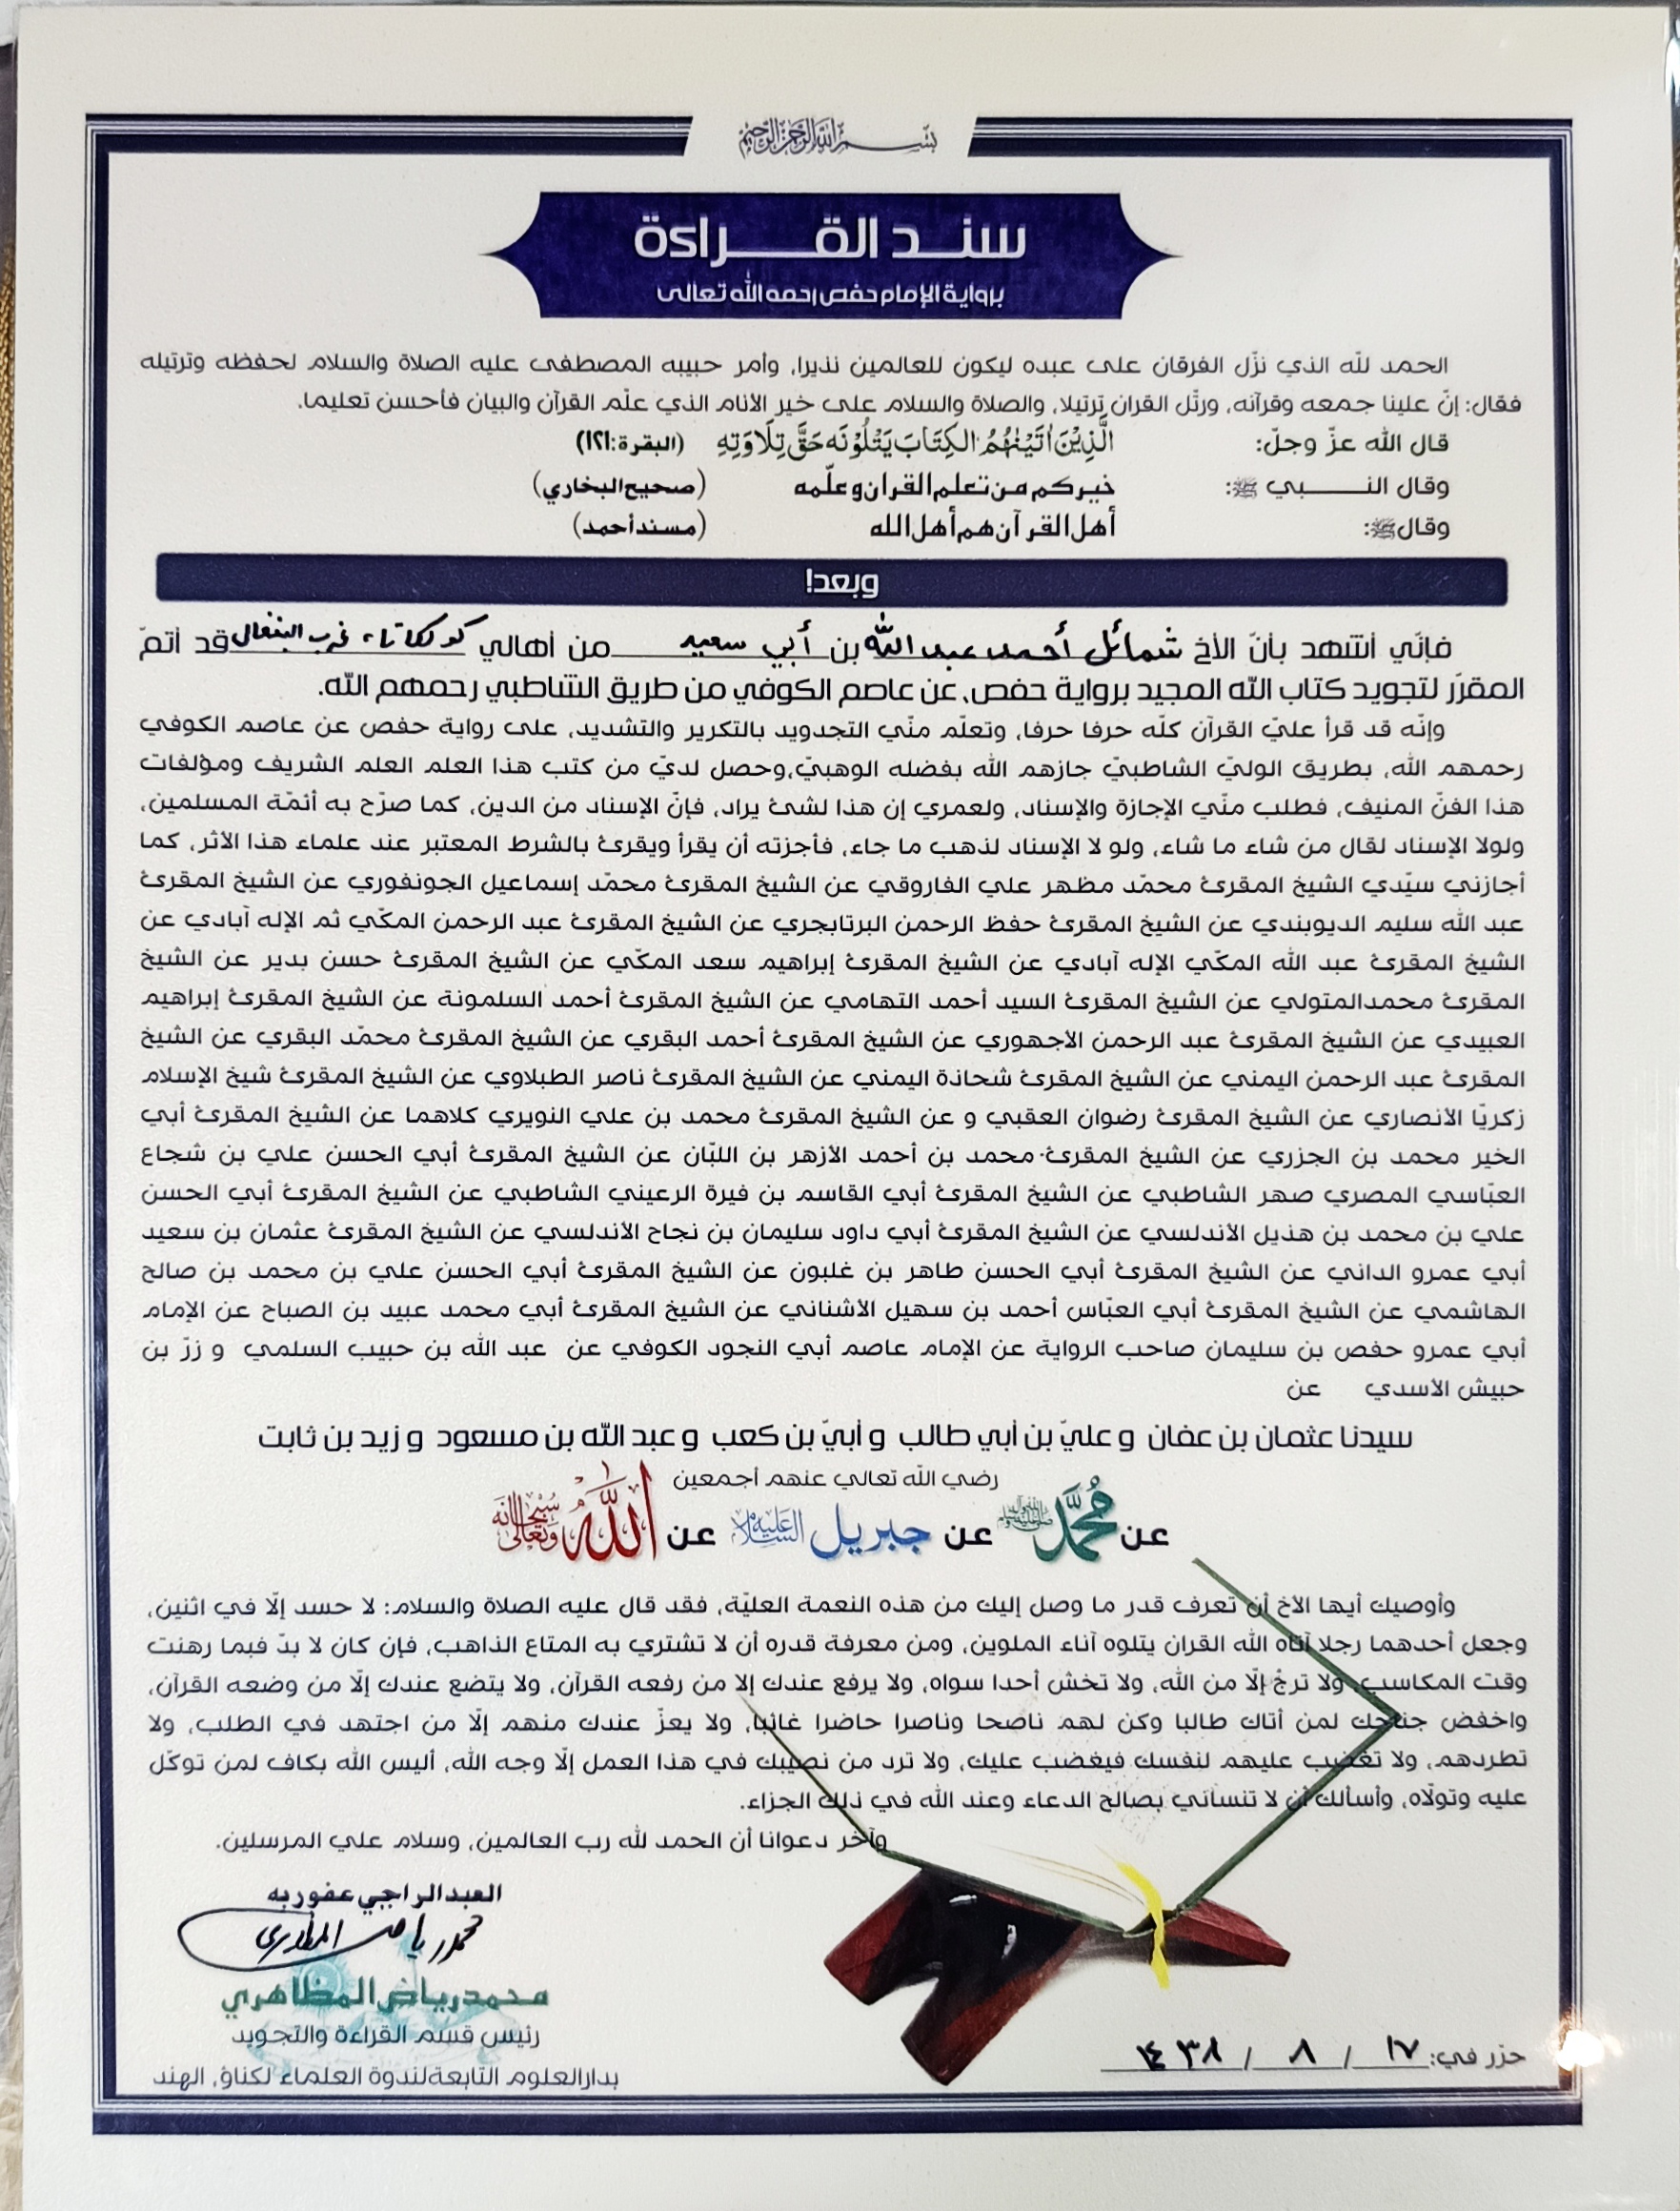 بسم الله الرحمن الرحيم
سند القراءة
برواية الإمام حفص رحمه الله تعالى
الحمد لله الذي نزّل الفرقان على عبده ليكون للعالمين نذيرا، وأمر حبيبه المصطفى عليه الصلاة والسلام لحفظه وترتيله
فقال: إنّ علينا جمعه وقرآنه، ورتّل القران ترتيلا، والصلاة والسلام على خير الأنام الذي علّم القرآن والبيان فأحسن تعليما.
قال الله عزّ وجلّ: الَّذِيْنَ اٰتَيْنٰهُمُ الكِتَابَ يَتْلُوْنَه حَقَّ تِلَاوَتِهِ (البقرة:١٢١)
وقال النبي ﷺ: خيركم من تعلم القران وعلّمه (صحيح البخاري)
وقال ﷺ: أهل القرآن هم أهل الله (مسند أحمد)
وبعد!
فإنّي أشهد بأنّ الأخ شمائل أحمد عبد الله بن أبي سعيد من أهالي كولكاتا، غرب البنغال قد أتمّ
المقرّر لتجويد كتاب الله المجيد برواية حفص، عن عاصم الكوفي من طريق الشاطبي رحمهم الله.
وإنّه قد قرأ عليّ القرآن كلّه حرفا حرفا، وتعلّم منّي التجدويد بالتكرير والتشديد، على رواية حفص عن عاصم الكوفي
رحمهم الله، بطريق الوليّ الشاطبيّ جازهم الله بفضله الوهبيّ،وحصل لديّ من كتب هذا العلم العلم الشريف ومؤلفات
هذا الفنّ المنيف، فطلب منّي الإجازة والإسناد، ولعمري إن هذا لشئ يراد، فإنّ الإسناد من الدين، كما صرّح به أئمّة المسلمين،
ولولا الإسناد لقال من شاء ما شاء، ولو لا الإسناد لذهب ما جاء، فأجزته أن يقرأ ويقرئ بالشرط المعتبر عند علماء هذا الأثر، كما
أجازني سيّدي الشيخ المقرئ محمّد مظهر علي الفاروقي عن الشيخ المقرئ محمّد إسماعيل الجونفوري عن الشيخ المقرئ
عبد الله سليم الديوبندي عن الشيخ المقرئ حفظ الرحمن البرتابجري عن الشيخ المقرئ عبد الرحمن المكّي ثم الإله آبادي عن
الشيخ المقرئ عبد الله المكّي الإله آبادي عن الشيخ المقرئ إبراهيم سعد المكّي عن الشيخ المقرئ حسن بدير عن الشيخ
المقرئ محمدالمتولي عن الشيخ المقرئ السيد أحمد التهامي عن الشيخ المقرئ أحمد السلمونة عن الشيخ المقرئ إبراهيم
العبيدي عن الشيخ المقرئ عبد الرحمن الأجهوري عن الشيخ المقرئ أحمد البقري عن الشيخ المقرئ محمّد البقري عن الشيخ
المقرئ عبد الرحمن اليمني عن الشيخ المقرئ شحاذة اليمني عن الشيخ المقرئ ناصر الطبلاوي عن الشيخ المقرئ شيخ الإسلام
زكريّا الأنصاري عن الشيخ المقرئ رضوان العقبي و عن الشيخ المقرئ محمد بن علي النويري كلاهما عن الشيخ المقرئ أبي
الخير محمد بن الجزري عن الشيخ المقرئ محمد بن أحمد الأزهر بن اللبّان عن الشيخ المقرئ أبي الحسن علي بن شجاع
العبّاسي المصري صهر الشاطبي عن الشيخ المقرئ أبي القاسم بن فيرة الرعيني الشاطبي عن الشيخ المقرئ أبي الحسن
علي بن محمد بن هذيل الأندلسي عن الشيخ المقرئ أبي داود سليمان بن نجاح الأندلسي عن الشيخ المقرئ عثمان بن سعيد
أبي عمرو الداني عن الشيخ المقرئ أبي الحسن طاهر بن غلبون عن الشيخ المقرئ أبي الحسن علي بن محمد بن صالح
الهاشمي عن الشيخ المقرئ أبي العبّاس أحمد بن سهيل الأشناني عن الشيخ المقرئ أبي محمد عبيد بن الصباح عن الإمام
أبي عمرو حفص بن سليمان صاحب الرواية عن الإمام عاصم أبي النجود الكوفي عن عبد الله بن حبيب السلمي و زرّ بن
حبيش الأسدي عن
سيدنا عثمان بن عفان و عليّ بن أبي طالب و أبيّ بن كعب و عبد الله بن مسعود و زيد بن ثابت
رضي الله تعالي عنهم أجمعين
عن مُحمَّد ﷺ عن جبريل عليه السلام عن الله سبحانه وتعالى
وأوصيك أيها الأخ أن تعرف قدر ما وصل إليك من هذه النعمة العليّة، فقد قال عليه الصلاة والسلام: لا حسد إلّا في اثنين،
وجعل أحدهما رجلا آتاه الله القران يتلوه آناء الملوين، ومن معرفة قدره أن لا تشتري به المتاع الذاهب، فإن كان لا بدّ فبما رهنت
وقت المكاسب، ولا ترجُ إلّا من الله، ولا تخش أحدا سواه، ولا يرفع عندك إلا من رفعه القرآن، ولا يتضع عندك إلّا من وضعه القرآن،
واخفض جناحك لمن أتاك طالبا وكن لهم ناصحا وناصرا حاضرا غائبا، ولا يعزّ عندك منهم إلّا من اجتهد في الطلب، ولا
تطردهم، ولا تغضب عليهم لنفسك فيغضب عليك، ولا ترد من نصيبك في هذا العمل إلّا وجه الله، أليس الله بكاف لمن توكّل
عليه وتولّاه، وأسألك أن لا تنساني بصالح الدعاء وعند الله في ذلك الجزاء.
وآخر دعوانا أن الحمد لله رب العالمين، وسلام علي المرسلين.
العبد الراجي عفو ربه
محمد رياض المظاهري
محمد رياض المظاهري
رئيس قسم القراءة والتجويد
بدارالعلوم التابعة لندوة العلماء لكناؤ، الهند
حرّر في: ١٧ / ٨ / ١٤٣٨